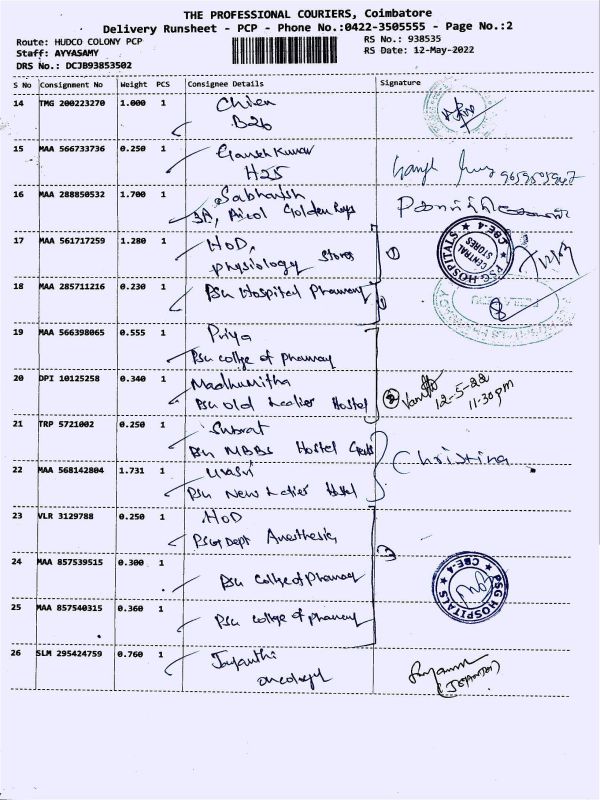 THE PROFESSIONAL COURIERS, Coimbatore
Delivery Runsheet - PCP - Phone No.:0422-3505555 - Page No.:2
Route: HUDCO COLONY PCP
RS No.: 938535
Staff: AYYASAMY
RS Date: 12-May-2022
DRS No.: DCJB93853502
S No Consignment No Weight PCS Consignee Details Signature
14 TMG 200223270 1.000 1 Chien
B26
15 MAA 566733736 0.250 1 Ganesh Kumar
H25
16 MAA 288850532 1.700 1 Sabharish
3A, Golden
17 MAA 561717259 1.280 1 HOD, Stores
Physiology
PSG HOSPITALS
CENTRAL STORES
CBE-4
18 MAA 285711216 0.230 1 PSG Hospital Pharmacy
19 MAA 566398065 0.555 1 Priya
PSG college of pharmacy
20 DPI 10125258 0.340 1 Madhumitha
PSG old Ladies Hostel
12-5-22
11.30pm
21 TRP 5721002 0.250 1 Subrat
PSG MBBS Hostel Gents
Christina
22 MAA 568142804 1.731 1
PSG New Ladies Hostel
23 VLR 3129788 0.250 1 HOD
PSG Dept Anesthesia
24 MAA 857539515 0.300 1
PSG College of Pharmacy
PSG HOSPITALS
CBE-4
25 MAA 857540315 0.360 1
PSG College of pharmacy
26 SLM 295424759 0.760 1 Jayanthi
oncology